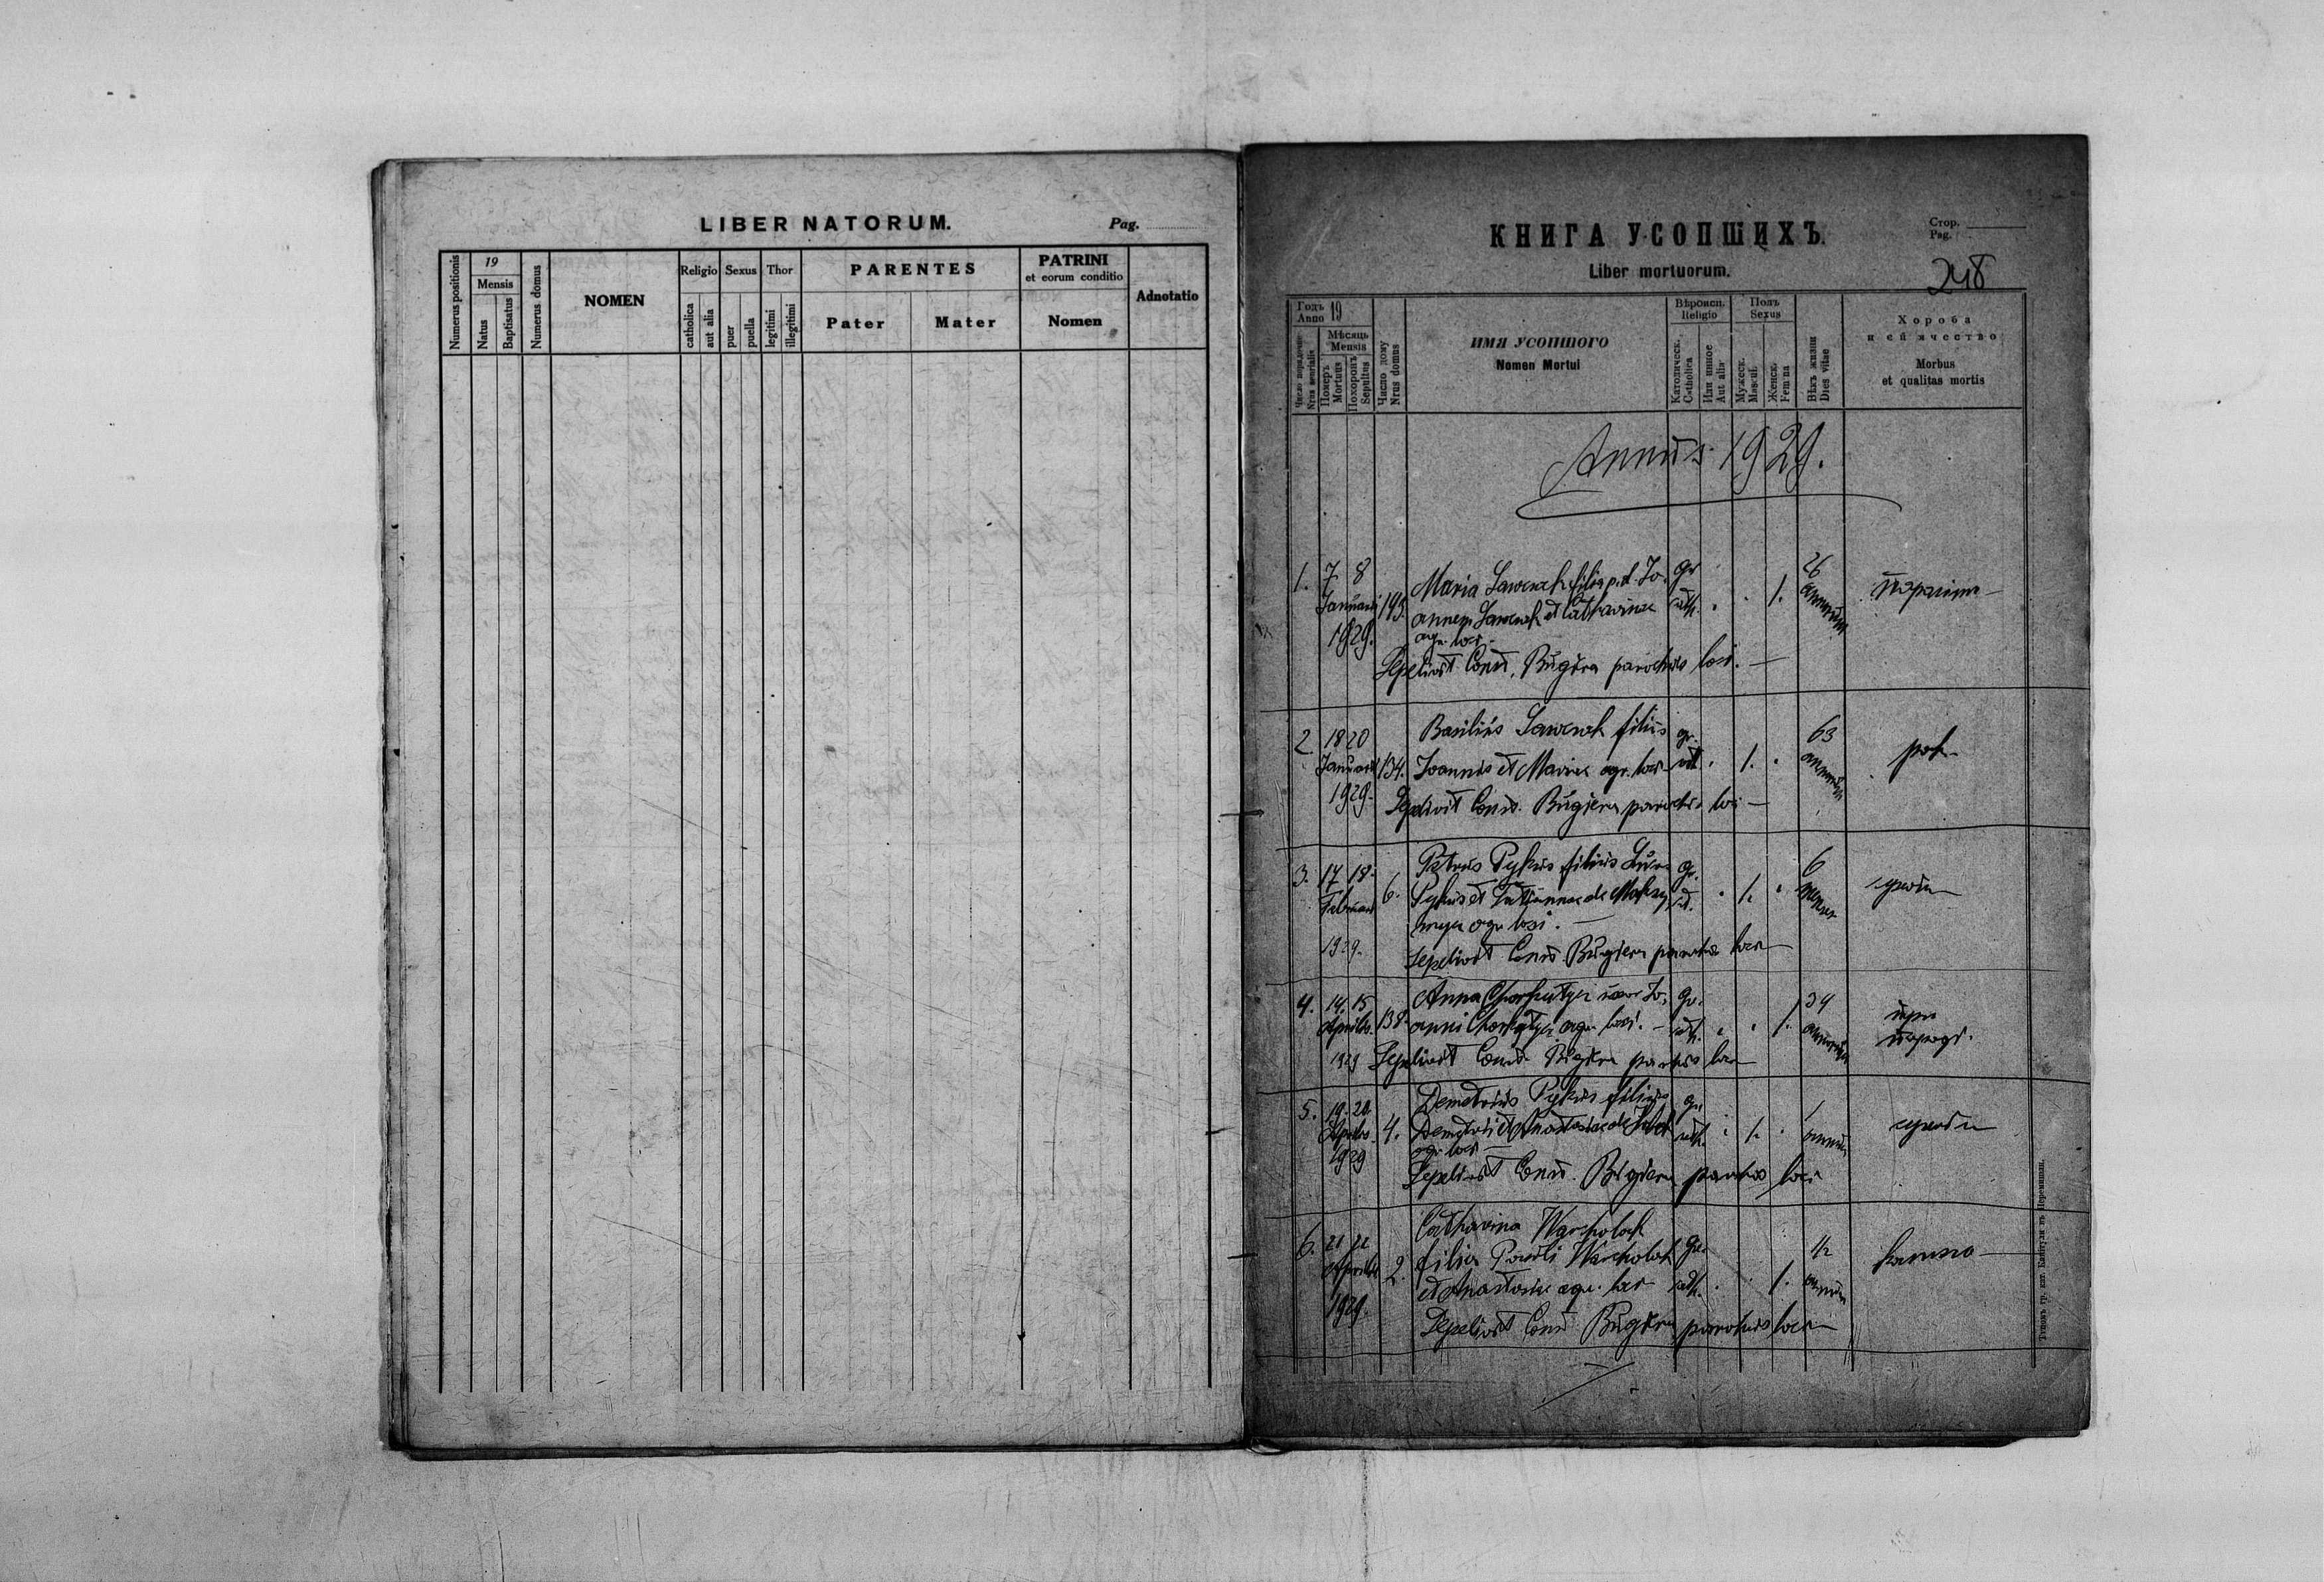 LIBER NATORUM.
Pag.
Numerus positionis
19
Mensis
Natus
Baptisatus
Numerus domus
NOMEN
Religio
catholica
aut alia
Sexus
puer
puella
Thor
legitimi
illegitimi
PARENTES
Pater
Mater
PATRINI
et eorum conditio
Nomen
Adnotatio
КНИГА УСОПШИХЪ.
Стор.
Pag.
Liber mortuorum.
248
Годъ
Anno 19
Мѣсяць
Mensis
Померъ
Mortuus
Похоронъ
Sepultus
Число дому
Nrus domus
ИМЯ УСОПШОГО
Nomen Mortui
Вѣроисп.
Religio
Католическ.
Catholica
Или инное
Aut alia
Полъ
Sexus
Мужеск.
Mascul.
Женск.
Femina
Вѣкъ жизни
Dies vitae
Хороба
и ей ячество
Morbus
et qualitas mortis
Annus 1929.
1. 7 8 Maria Sawczak filia p.d. Jo- gr 26
Januarii 195. annem Sawczak et Catharinae cath. 1. annorum
1929. agr. loci
Sepelivit Const. Bugera parochus loci.
2. 18 20 Basilius Sawczak filius gr. 63
Januarii 134. Joannis et Mariae agr. loci cath. 1. annorum
1929. Sepelivit Const. Bugiera parochus loci
3. 17 18. Petrus Pykus filius gr. 6
Februarii 6. Pykus et Tatiannae de 1.
agr loci.
1929. Sepelivit Const. Bugiera parochus loci
4. 14. 15 Anna uxor Jo- gr. 34
Aprilis. 138. anni agr. loci. cath. 1. annorum при
1929 Sepelivit Const. Bugiera parochus loci
5. 19. 20. Demetrius Pykus filius gr 1
Aprilis 4. Demetrii et Anastasiae de cath. 1. annum
1929 agr. loci
Sepelivit Const. Bugiera parochus loci
Catharina Warcholak
6. 21 22 filia Pauli Warcholak gr. 1/2
Aprilis 2. et Anastasiae agr. loci cath. 1.
1929. Sepelivit Const Bugiera parochus loci